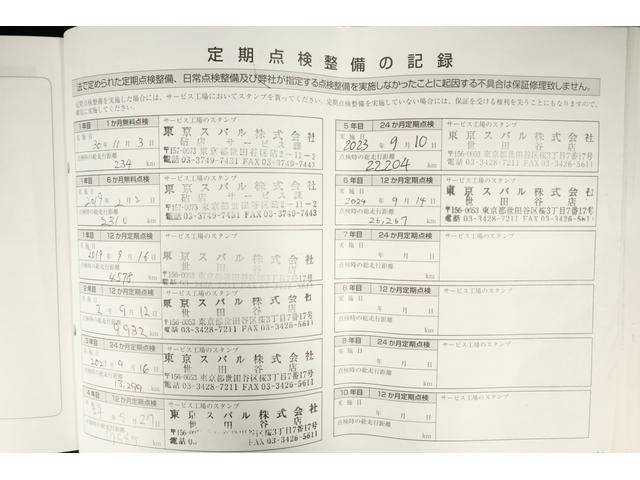 定期点検整備の記録
法で定められた定期点検整備、日常点検整備及び弊社が指定する点検整備を実施しなかったことに起因する不具合は保証修理致しません。
定期点検整備を実施した場合には、サービス工場においてスタンプを貰ってください。定期点検整備を実施していない場合には、保証を受ける権利を失うことにもなりますので、
確実に実施してください。
1年目 1か月無料点検 サービス工場のスタンプ
実施日
30年11月3日
点検時の総走行距離
234 km
東京スバル株式会社
砧店 サービス課
〒157-0073 東京都世田谷区砧2-11-2
電話 03-3749-7431 FAX 03-3749-7443
1年目 6か月無料点検 サービス工場のスタンプ
実施日
2019年2月2日
点検時の総走行距離
2310 km
東京スバル株式会社
砧店 サービス課
〒157-0073 東京都世田谷区砧2-11-2
電話 03-3749-7431 FAX 03-3749-7443
1年目 12か月定期点検 サービス工場のスタンプ
実施日
2019年9月16日
点検時の総走行距離
4578 km
東京スバル株式会社
世田谷店
〒156-0053 東京都世田谷区桜3丁目7番17号
電話 03-3428-7211 FAX 03-3426-5611
2年目 12か月定期点検 サービス工場のスタンプ
実施日
2年9月12日
点検時の総走行距離
9932 km
東京スバル株式会社
世田谷店
〒156-0053 東京都世田谷区桜3丁目7番17号
電話 03-3428-7211 FAX 03-3426-5611
3年目 24か月定期点検 サービス工場のスタンプ
実施日
2021年9月16日
点検時の総走行距離
km
東京スバル株式会社
世田谷店
〒156-0053 東京都世田谷区桜3丁目7番17号
電話 03-3428-7211 FAX 03-3426-5611
4年目 12か月定期点検 サービス工場のスタンプ
実施日
年 月27日
点検時の総走行距離
km
東京スバル株式会社
世田谷店
〒156-00 東京都世田谷区桜3丁目7番17号
電話 0 FAX 03-3426-5611
5年目 24か月定期点検 サービス工場のスタンプ
実施日
2023年9月10日
点検時の総走行距離
22204 km
東京スバル株式会社
世田谷店
〒156-0053 東京都世田谷区桜3丁目7番17号
電話 03-3428-7211 FAX 03-3426-5611
6年目 12か月定期点検 サービス工場のスタンプ
実施日
2024年9月14日
点検時の総走行距離
26,267 km
東京スバル株式会社
世田谷店
〒156-0053 東京都世田谷区桜3丁目7番17号
電話 03-3428-7211 FAX 03-3426-5611
7年目 24か月定期点検 サービス工場のスタンプ
実施日
年 月 日
点検時の総走行距離
km
8年目 12か月定期点検 サービス工場のスタンプ
実施日
年 月 日
点検時の総走行距離
km
9年目 24か月定期点検 サービス工場のスタンプ
実施日
年 月 日
点検時の総走行距離
km
10年目 12か月定期点検 サービス工場のスタンプ
実施日
年 月 日
点検時の総走行距離
km